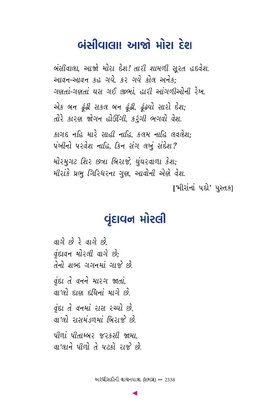 બંસીવાલા! આજો મોરા દેશ
બંસીવાલા, આજો મોરા દેશ! તારી શામળી સૂરત હૃદવેશ.
આવન-આવન કહ ગયે, કર ગયે કોલ અનેક;
ગણતાં-ગણતાં ઘસ ગઈ જીભાં, હારી આંગળીઓની રેખ.
એક બન ઢૂંઢી સકલ બન ઢૂંઢી, ઢૂંઢ્યો સારો દેશ;
તોરે કારણ જોગન હોઉંગી, કરૂંગી ભગવો વેશ.
કાગદ નહિ મારે સાહી નહિ, કલમ નહિ લવલેશ;
પંખીનો પરવેશ નહિ, કિન સંગ લખું સંદેશ?
મોરમુગટ શિર છત્રા બિરાજે, ઘુંઘરવાળા કેશ;
મીરાંકે પ્રભુ ગિરિધરના ગુણ, આવોની એણે વેશ.
[‘મીરાંનાં પદો’ પુસ્તક]
વૃંદાવન મોરલી
વાગે છે રે વાગે છે,
વૃંદાવન મોરલી વાગે છે;
તેનો શબ્દ ગગનમાં ગાજે છે.
વૃંદા તે વનને મારગ જાતાં,
વા’લો દાણ દધિનાં માગે છે.
વૃંદા તે વનમાં રાસ રચ્યો છે,
વા’લો રાસમંડળમાં બિરાજે છે.
પીળાં પીતાંબર જરકસી જામા,
વા’લાને પીળો તે પટકો રાજે છે.
અરધીસદીની વાચનયાત્રા (ઇજમ) — 2338